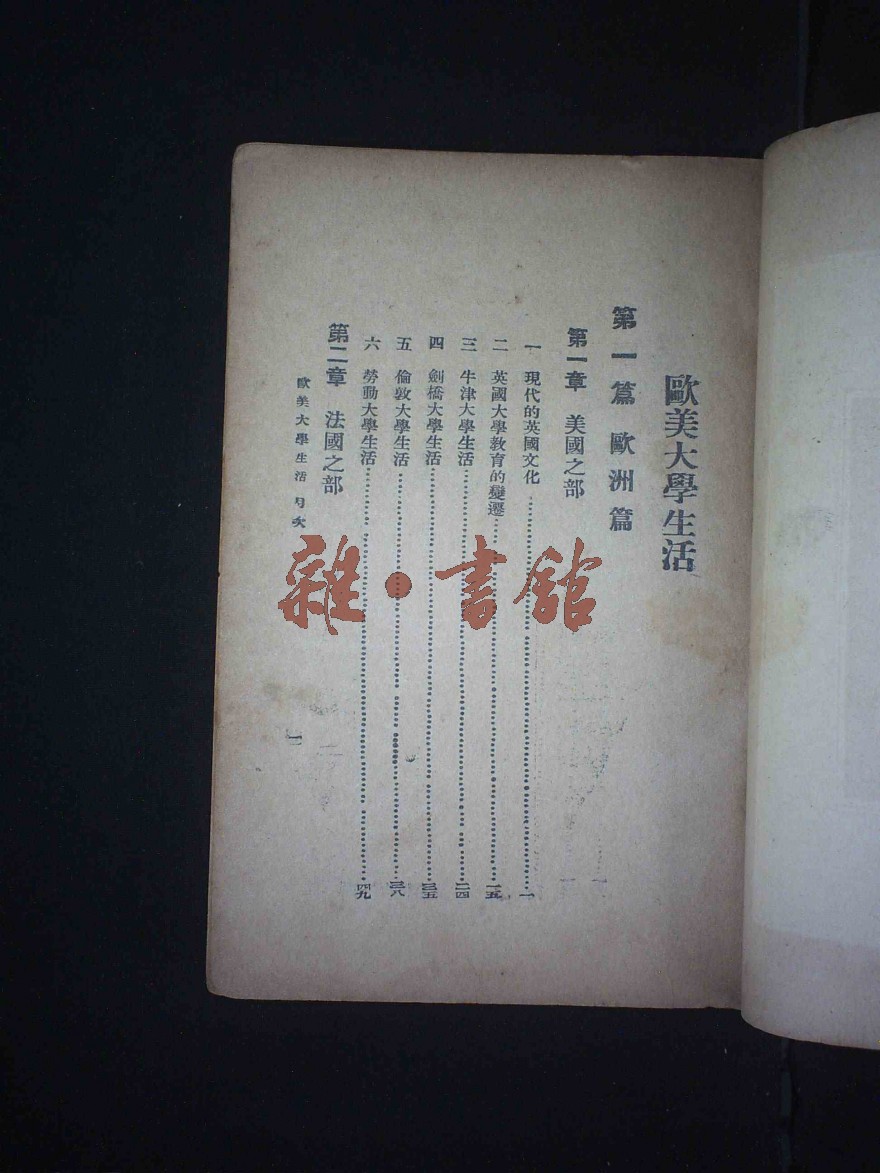 歐美大學生活
第一篇 歐洲篇
第一章 美國之部
一 現代的英國文化……一
二 英國大學教育的變遷……一五
三 牛津大學生活……二四
四 劍橋大學生活……三五
五 倫敦大學生活……三八
六 勞動大學生活……四九
第二章 法國之部
歐美大學生活 目次
一
雜·書館